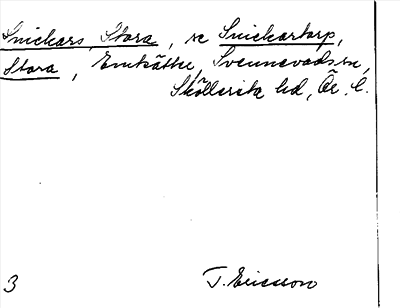 Snickars, Stora, se Snickartorp,
Stora, Enkätter, Svennevads sn,
Sköllersta hd, Ör. l.
3 T. Ericsson